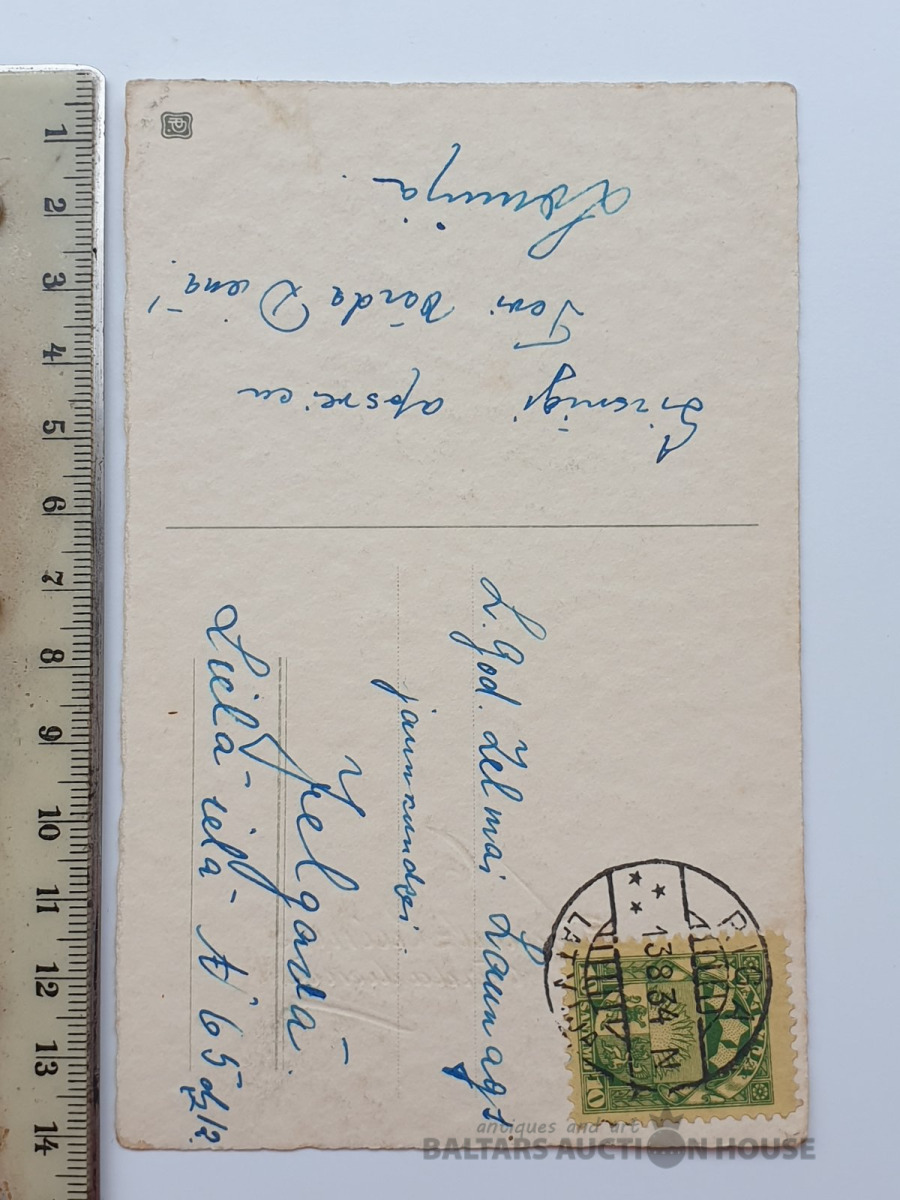 Sirsnīgi apsveicu
Tevi Vārda Dienā!
L. God. Zelmai Launags
jaunkundzei
Jelgavā.
Lielā-ielā № 65 dz 12.
RĪGA
13 8 34 N
LATVIJA
10
1
2
3
4
5
6
7
8
9
10
11
12
13
14
antiques and art
BALTARS AUCTION HOUSE